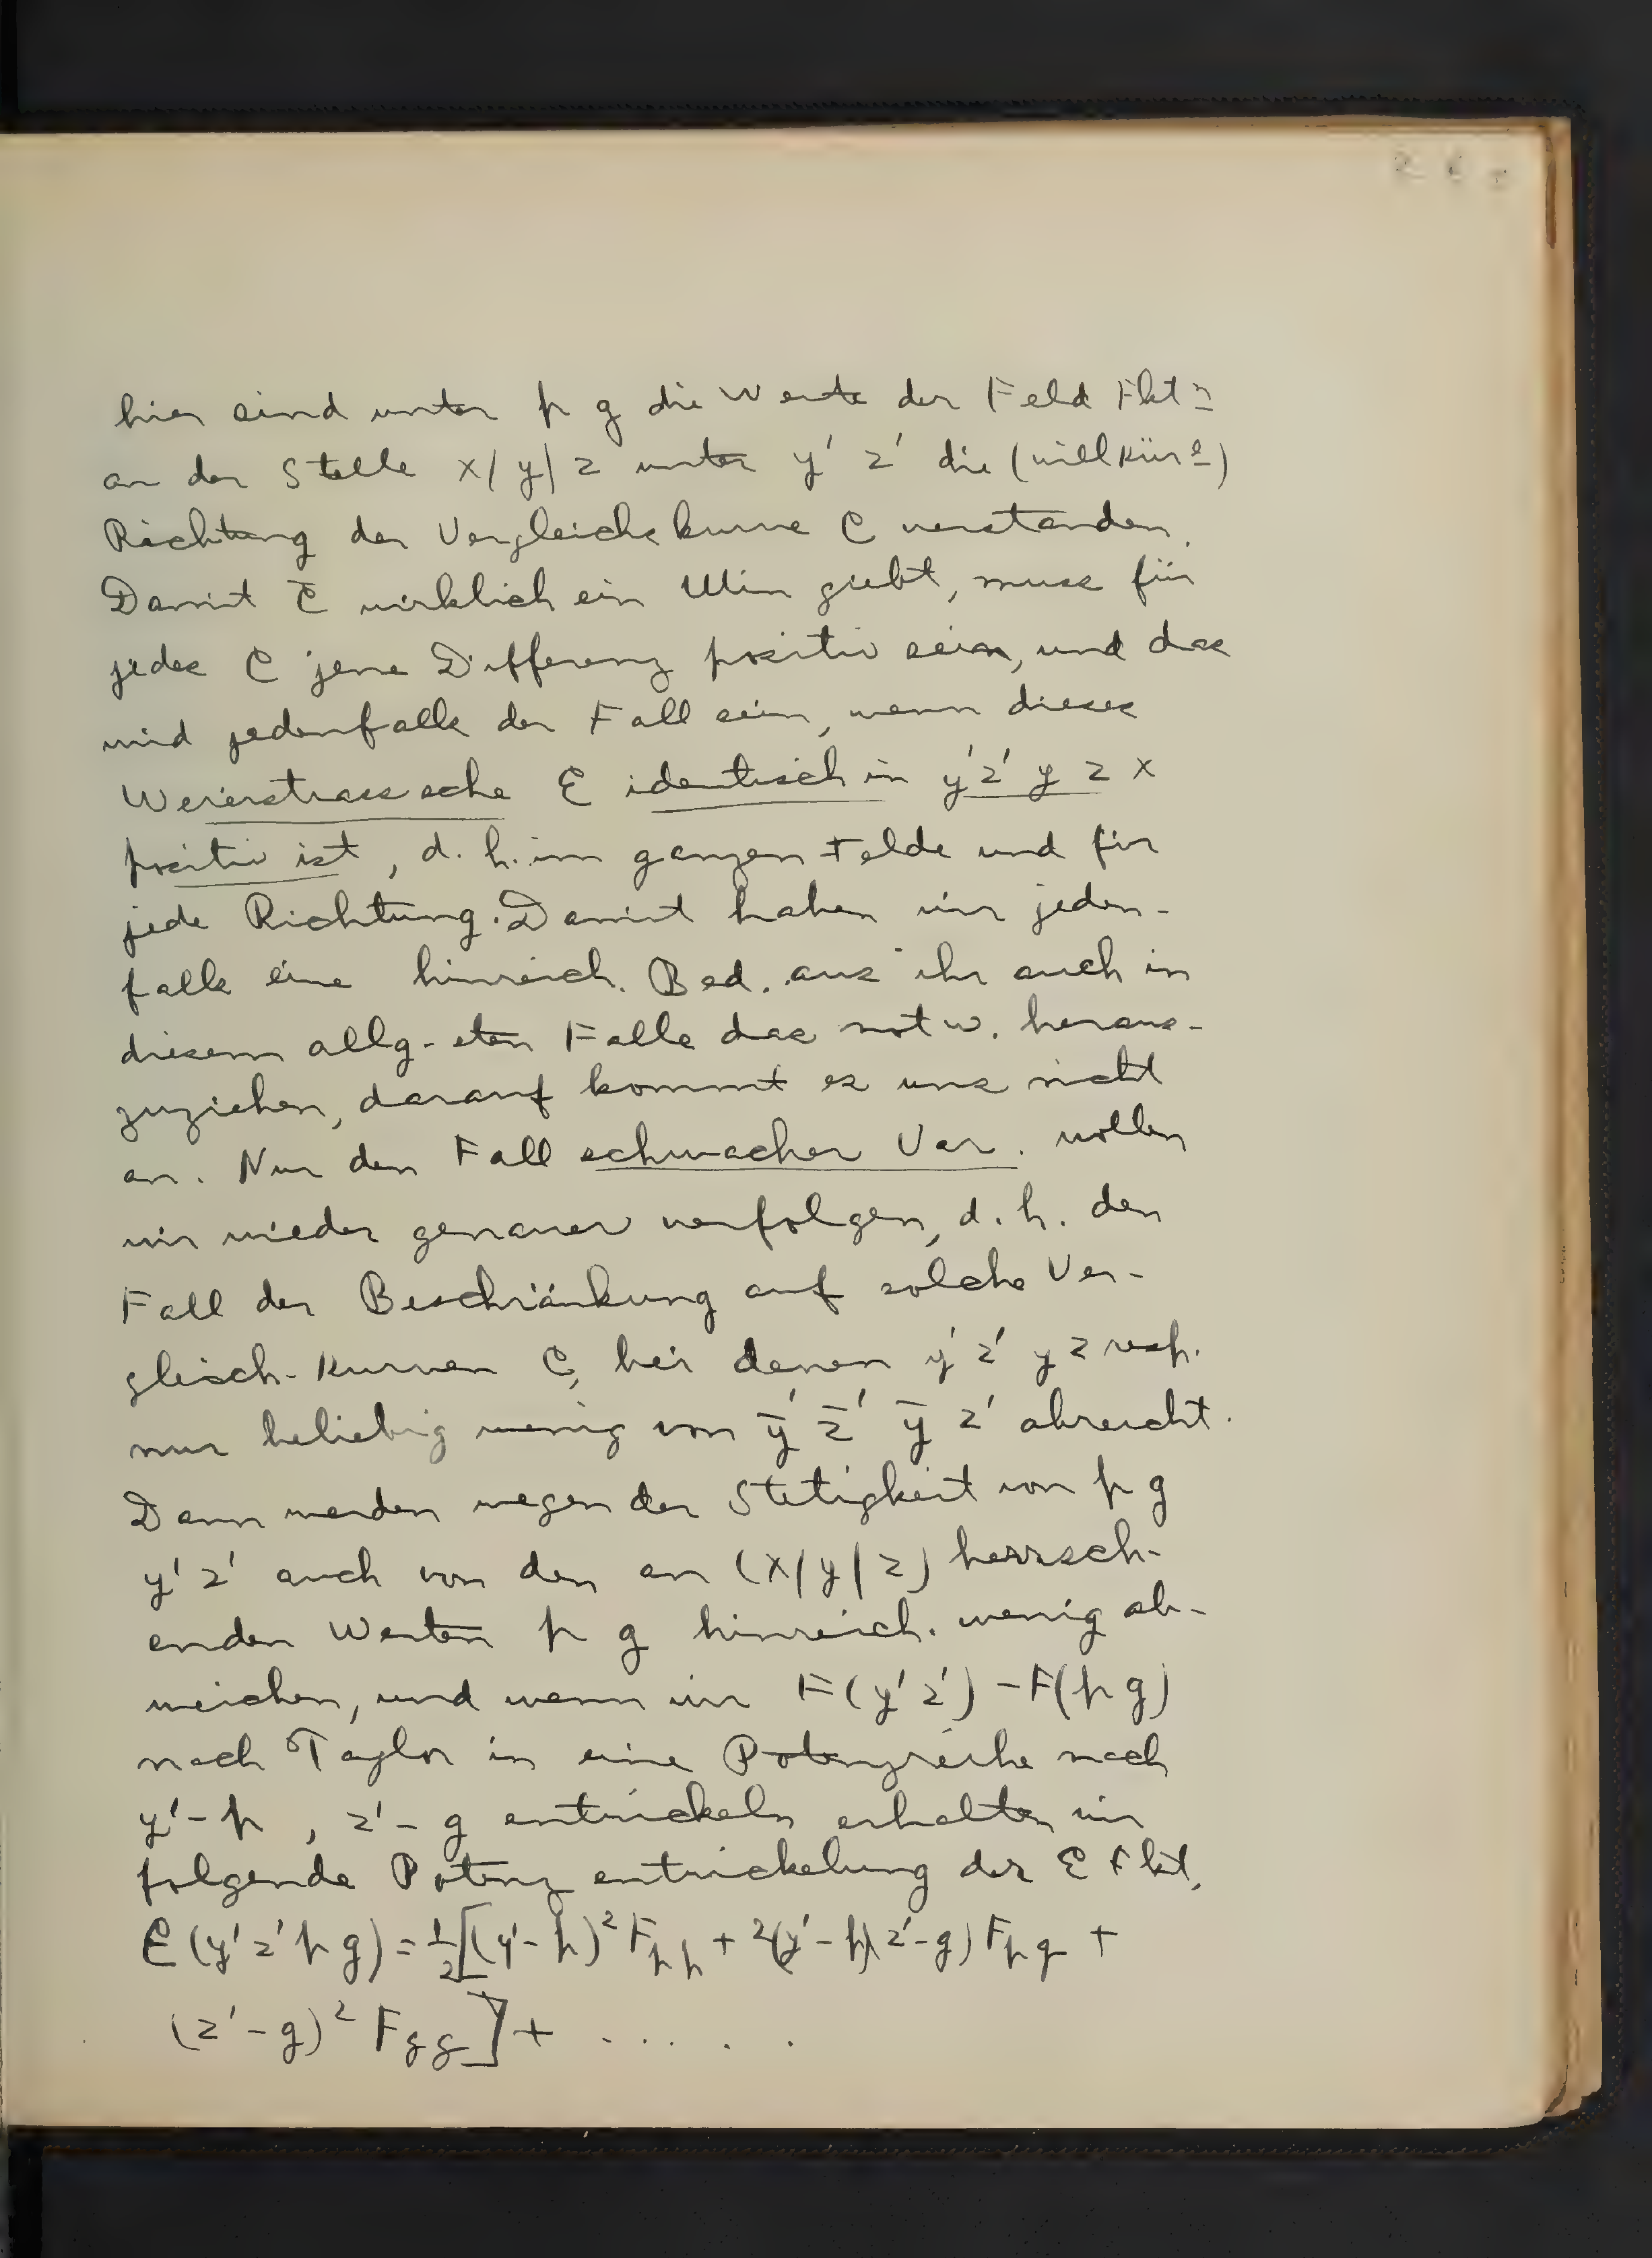 hier sind unter p q die Werte der Feld Fktn
an der Stelle x/y/z unter y' z' die (willküre)
Richtung der Vergleichskurve C verstanden.
Damit C̄ wirklich ein Min giebt, muss für
jedes C jene Differenz positiv sein, und das
wird jedenfalls der Fall sein, wenn dieses
Weierstrasssche E identisch in y' z' y z x
positiv ist, d. h. im ganzen Felde und für
jede Richtung. Damit haben wir jeden-
falls eine hinreich. Bed. aus ihr auch in
diesem allg-sten Falle das notw. heraus-
zuziehen, darauf kommt es uns nicht
an. Nur den Fall schwacher Var. wollen
wir wieder genauer verfolgen, d. h. den
Fall der Beschränkung auf solche Ver-
gleich-Kurven C, bei denen y' z' y z resp.
nur beliebig wenig von ȳ' z̄' ȳ z' abweicht.
Dann werden wegen der Stetigkeit von p q
y' z' auch von den an (x/y/z) herrsch-
enden Werten p q hinreich. wenig ab-
weichen, und wenn wir F(y' z') - F(p q)
nach Taylor in eine Potenzreihe nach
y' - p , z' - q entwickeln erhalten wir
folgende Potenzentwickelung der E Fkt.
E (y' z' p q) = 1/2 [(y' - p)² F_pp + 2(y' - p)(z' - q) F_pq +
(z' - q)² F_qq] + . . . . . .